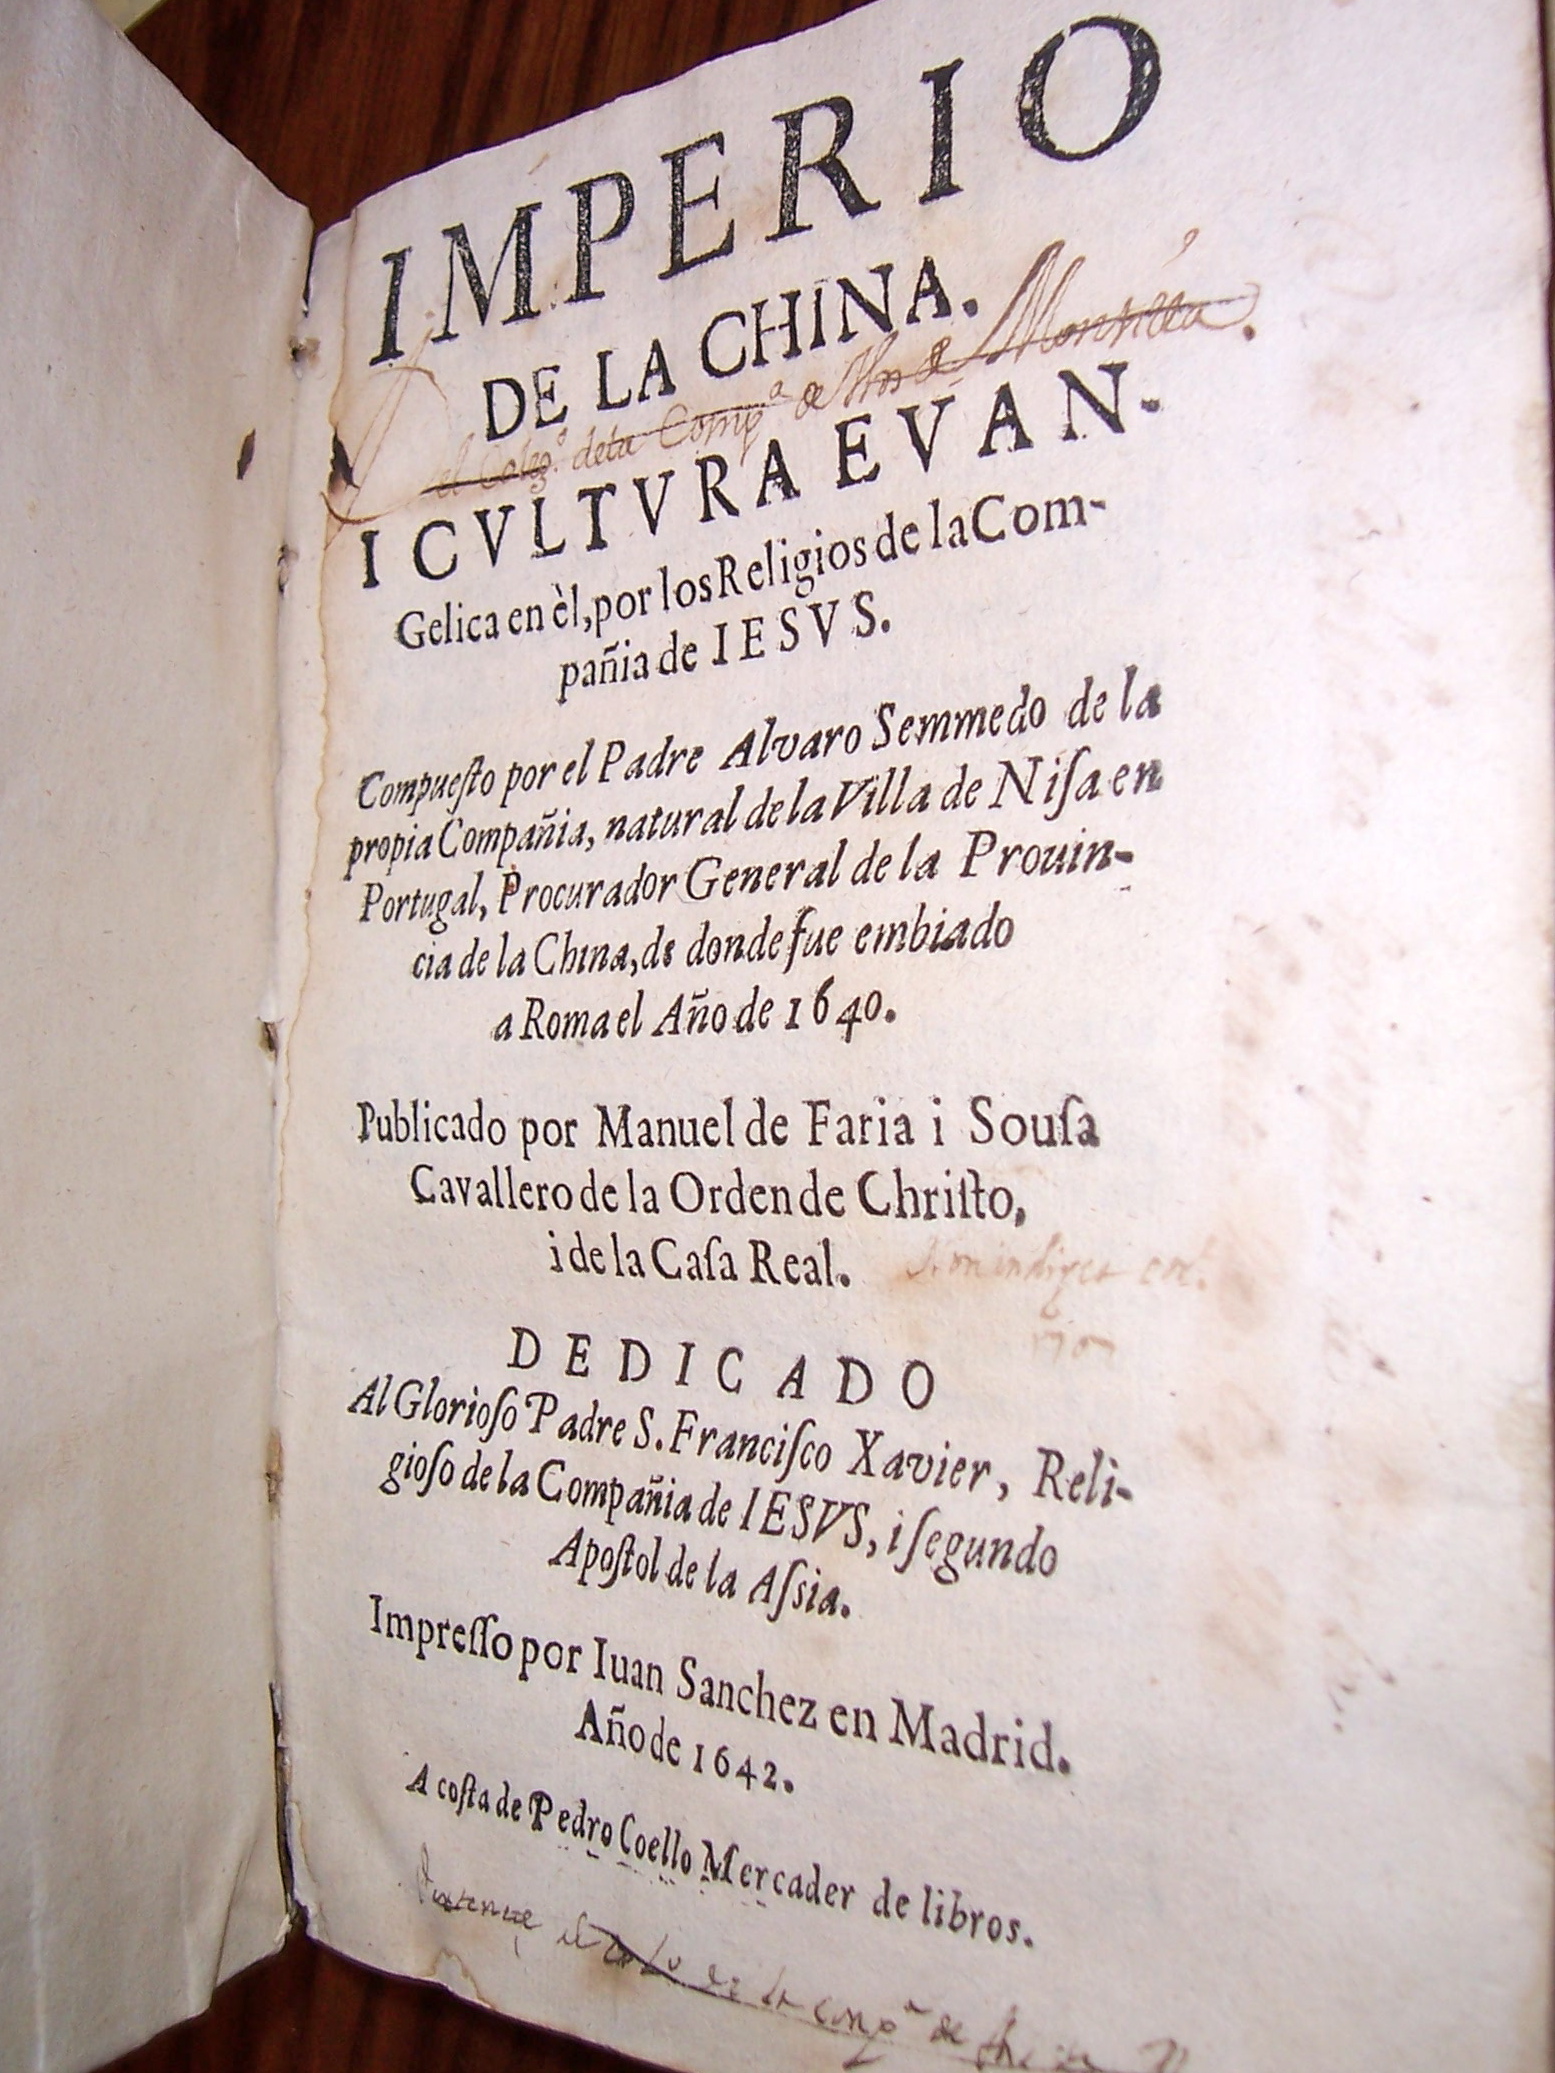 IMPERIO
DE LA CHINA.
el Coleg.º dela Compª de Montilla.
I CVLTVRA EVAN-
Gelica en èl, por los Religios de la Com-
pañia de IESVS.
Compueſto por el Padre Alvaro Semmedo de la
propia Compañia, natural de la Villa de Niſa en
Portugal, Procurador General de la Prouin-
cia de la China, de donde fue embiado
a Roma el Año de 1640.
Publicado por Manuel de Faria i Souſa
Cavallero de la Orden de Chriſto,
i de la Caſa Real.
DEDICADO
Al Glorioſo Padre S. Franciſco Xavier, Reli-
gioſo de la Compañia de IESVS, i ſegundo
Apoſtol de la Aſsia.
Impreſſo por Iuan Sanchez en Madrid.
Año de 1642.
A coſta de Pedro Coello Mercader de libros.
de la compª de